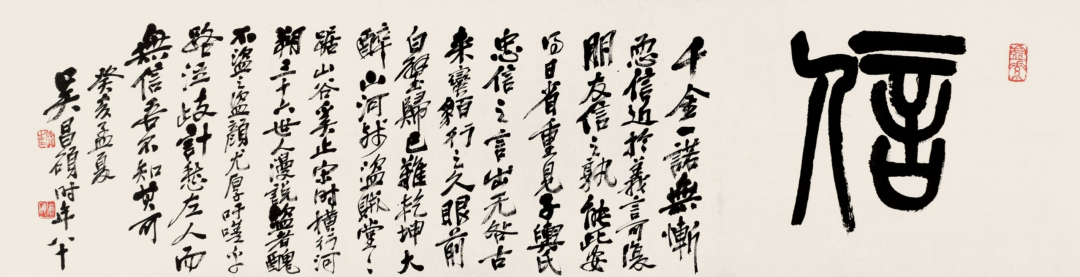 信
千金一諾無慚
恧信近於義言可復
朋友信之孰能此安
得日省重見子輿氏
忠信之言出无咎古
來蠻貊行之久眼前
白璧歸已難乾坤大
醉山河缺盜賊堂〻
踞山谷奚止宋時橫行河
朔三十六世人漫說盜者醜
不盜之盜顏尤厚吁嗟乎
路泣歧計愁左人而
無信吾不知其可
癸亥孟夏
吳昌碩時年八十